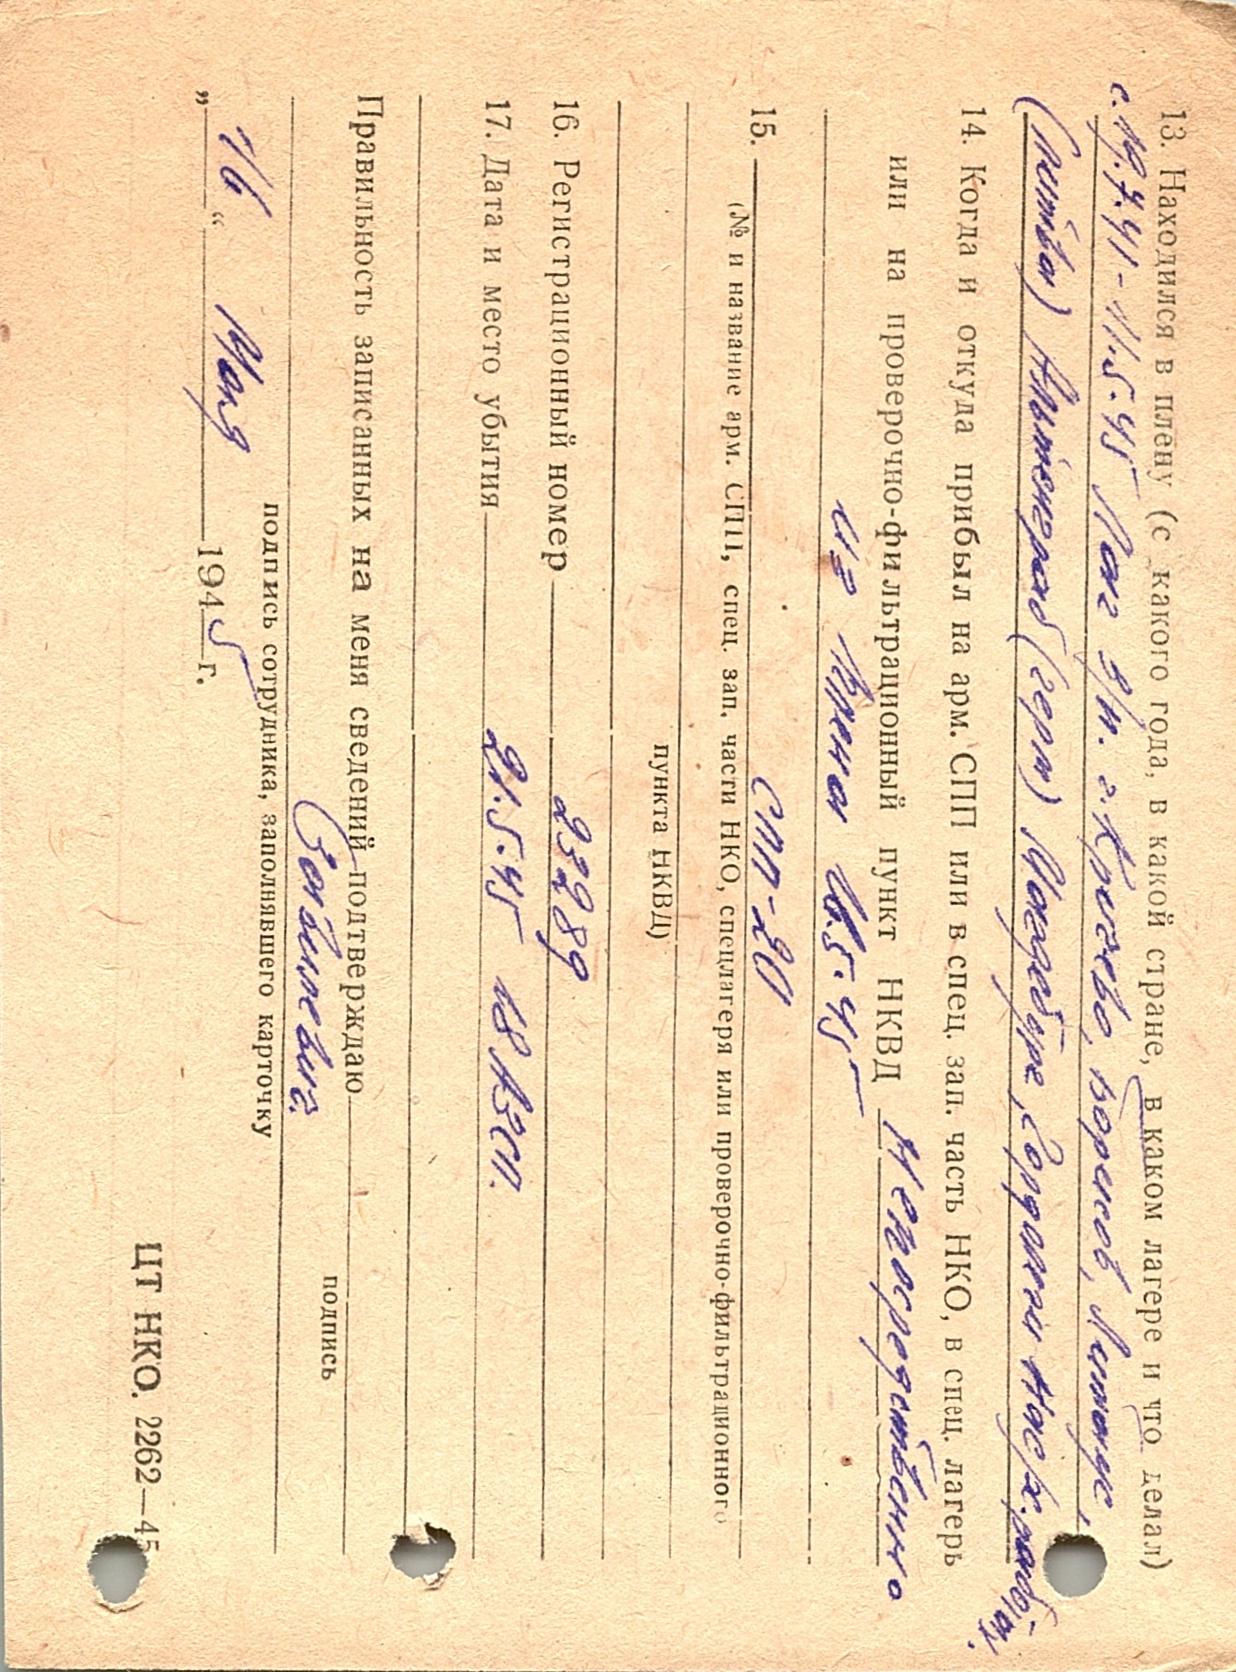 13. Находился в плену (с какого года, в какой стране, в каком лагере и что делал)
с 19.7.41 - 11.5.45 Лаг в/п. г. Кричево, Борисов,
(Литва) Альтенграб (герм) Магдебург,
14. Когда и откуда прибыл на арм. СПП или в спец. зап. часть НКО, в спец. лагерь
или на проверочно-фильтрационный пункт НКВД Непосредственно
из плена 16.5.45
15. СПП-20
(№ и название арм. СПП, спец. зап. части НКО, спецлагеря или проверочно-фильтрационного
пункта НКВД)
16. Регистрационный номер 23289
17. Дата и место убытия 21.5.45 18 АЗСП.
Правильность записанных на меня сведений подтверждаю
подпись
подпись сотрудника, заполнявшего карточку
„16“ Мая 1945 г.
ЦТ НКО. 2262—45